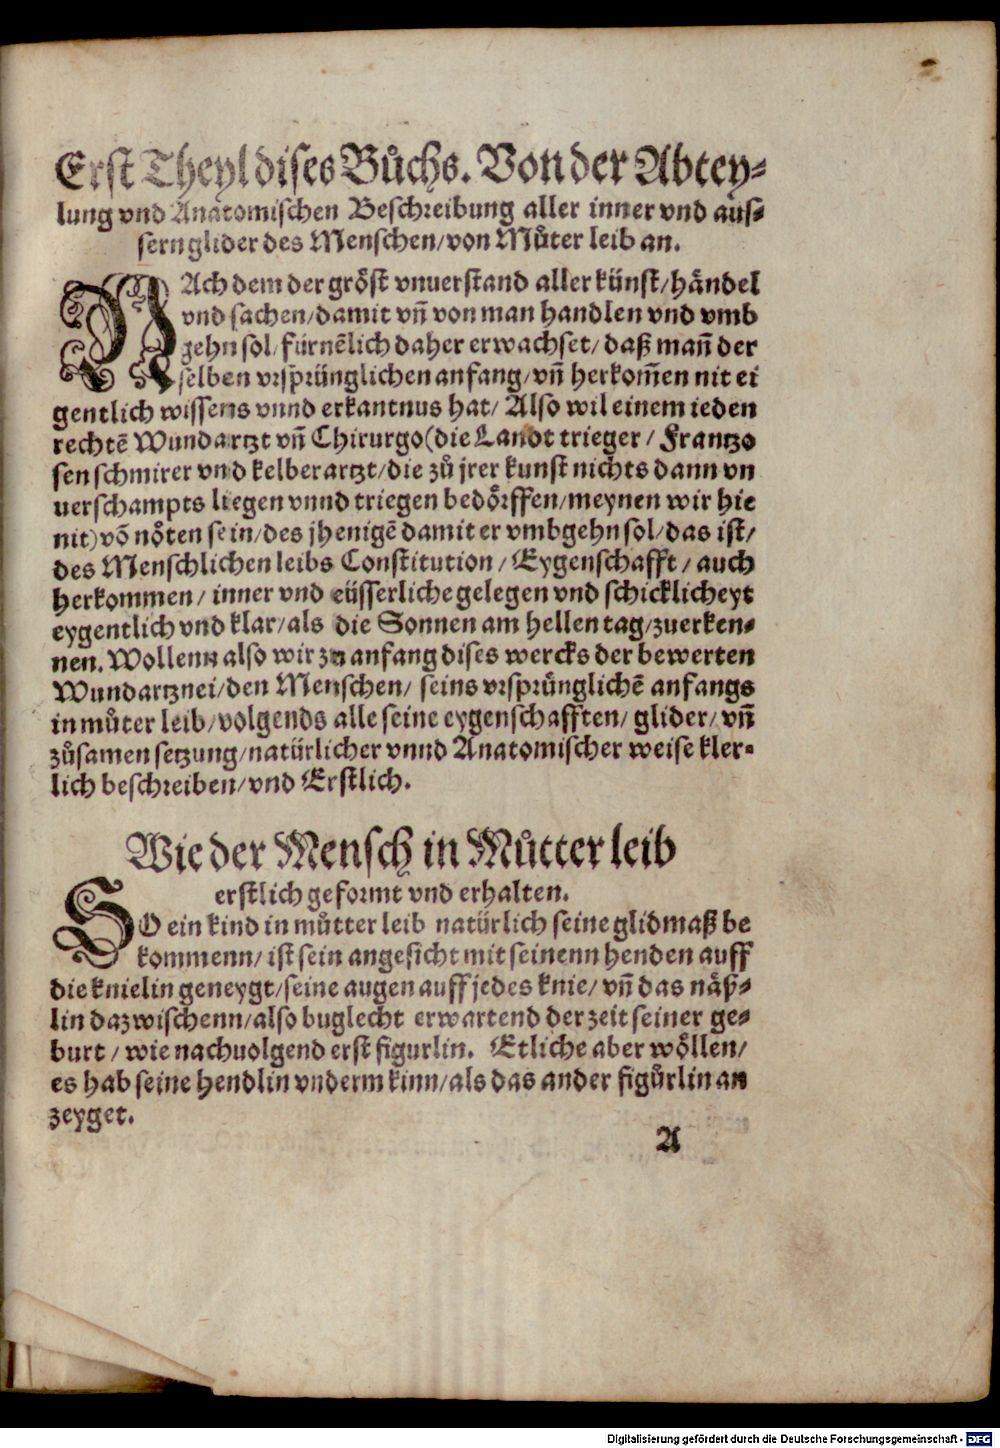 Erst Theyl dises Bůchs. Von der Abtey-
lung vnd Anatomischen Beschreibung aller inner vnd aus-
sern glider des Menschen/von Můter leib an.
NAch dem der gröst vnuerstand aller künst/händel
vnd sachen/damit vñ von man handlen vnd vmb
gehn sol/fürnẽlich daher erwachset/daß mañ der
selben vrsprünglichen anfang/vñ herkom̃en nit ei
gentlich wissens vnnd erkantnus hat/ Also wil einem ieden
rechtẽ Wundartzt vñ Chirurgo(die Landt trieger/ Frantzo
sen schmirer vnd kelberartzt/die zů jrer kunst nichts dann vn
uerschampts liegen vnnd triegen bedörffen/meynen wir hie
nit)võ nöten sein/des jhenigẽ damit er vmbgehn sol/das ist/
des Menschlichen leibs Constitution/ Eygenschafft/ auch
herkommen/ inner vnd eüsserliche gelegen vnd schicklicheyt
eygentlich vnd klar/als die Sonnen am hellen tag/zuerken-
nen. Wollenn also wir zu anfang dises wercks der bewerten
Wundartznei/den Menschen/ seins vrsprünglichẽ anfangs
in můter leib/volgends alle seine eygenschafften/ glider/ vñ
zůsamen setzung/natürlicher vnnd Anatomischer weise kler-
lich beschreiben/vnd Erstlich.
Wie der Mensch in Můtter leib
erstlich geformt vnd erhalten.
SO ein kind in můtter leib natürlich seine glidmaß be
kommenn/ ist sein angesicht mit seinenn henden auff
die knielin geneygt/seine augen auff jedes knie/ vñ das näß-
lin dazwischenn/also buglecht erwartend der zeit seiner ge-
burt/ wie nachuolgend erst figurlin. Etliche aber wöllen/
es hab seine hendlin vnderm kinn/als das ander figürlin an
zeyget.
A
Digitalisierung gefördert durch die Deutsche Forschungsgemeinschaft - DFG